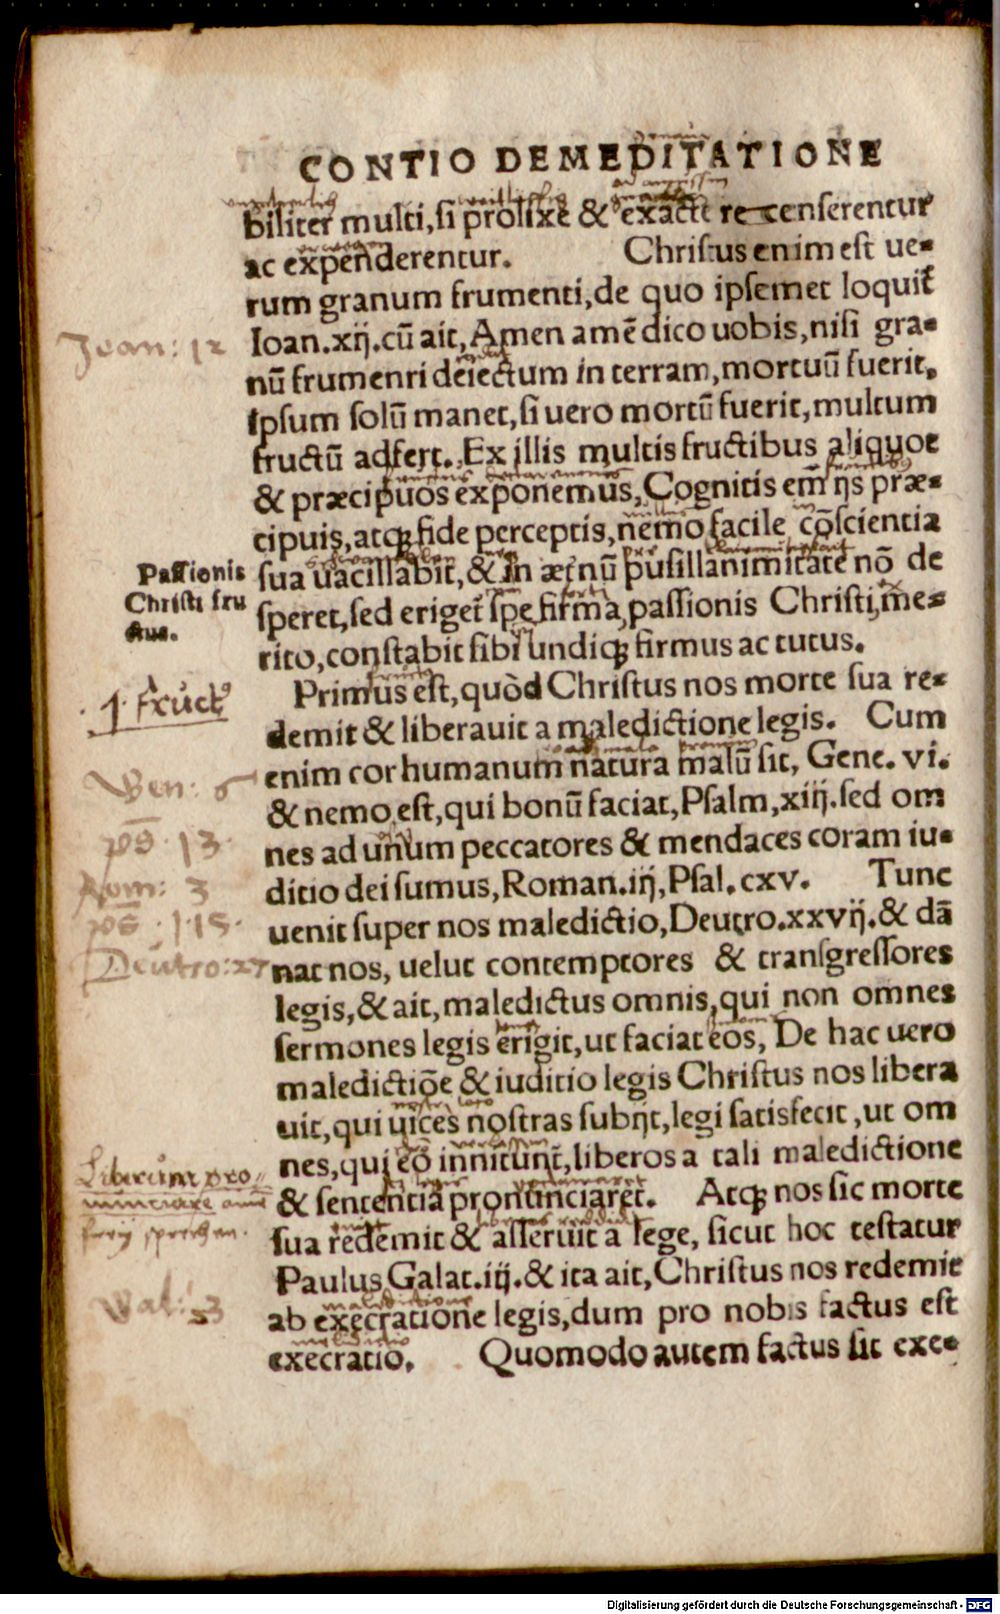 CONTIO DE MEDITATIONE
biliter multi, si prolixe & exacte recenserentur
ac expenderentur. Christus enim est ue-
rum granum frumenti, de quo ipsemet loquit᷑
Ioan. xij. cū ait, Amen amē dico uobis, nisi gra-
Joan: 12
nū frumenri deiectum in terram, mortuū fuerit,
ipsum solū manet, si uero mortū fuerit, multum
fructū adfert. Ex illis multis fructibus aliquot
& præcipuos exponemus, Cognitis em̄ ijs præ-
cipuis, atqꝫ fide perceptis, nemo facile cōscientia
sua uacillabit, & in æternū pusillanimitate nō de
Passionis
Christi fru
ctus.
speret, sed eriget᷑ spe firma, passionis Christi, me-
rito, constabit sibi undiqꝫ firmus ac tutus.
Primus est, quòd Christus nos morte sua re-
1. Fruct9
demit & liberauit a maledictione legis. Cum
enim cor humanum natura malū sit, Gene. vi.
Gen: 6
& nemo est, qui bonū faciat, Psalm, xiij. sed om
nes ad unum peccatores & mendaces coram iu-
ps. 13.
ditio dei sumus, Roman. iij, Psal. cxv. Tunc
Rom: 3
uenit super nos maledictio, Deutro. xxvij. & dā
ps. 115.
nat nos, uelut contemptores & transgressores
Deutro: 27
legis, & ait, maledictus omnis, qui non omnes
sermones legis erigit, ut faciat eos, De hac uero
maledictiōe & iuditio legis Christus nos libera
uit, qui uices nostras subijt, legi satisfecit, ut om
nes, qui eo innitunt᷑, liberos a tali maledictione
& sententia pronunciaret. Atqꝫ nos sic morte
Liberum pro-
nunciare
sua redemit & asseruit a lege, sicut hoc testatur
Paulus Galat. iij. & ita ait, Christus nos redemit
Gal: 3
ab execratione legis, dum pro nobis factus est
maledictione
execratio. Quomodo autem factus sit exe-
maledictio
Digitalisierung gefördert durch die Deutsche Forschungsgemeinschaft - DFG